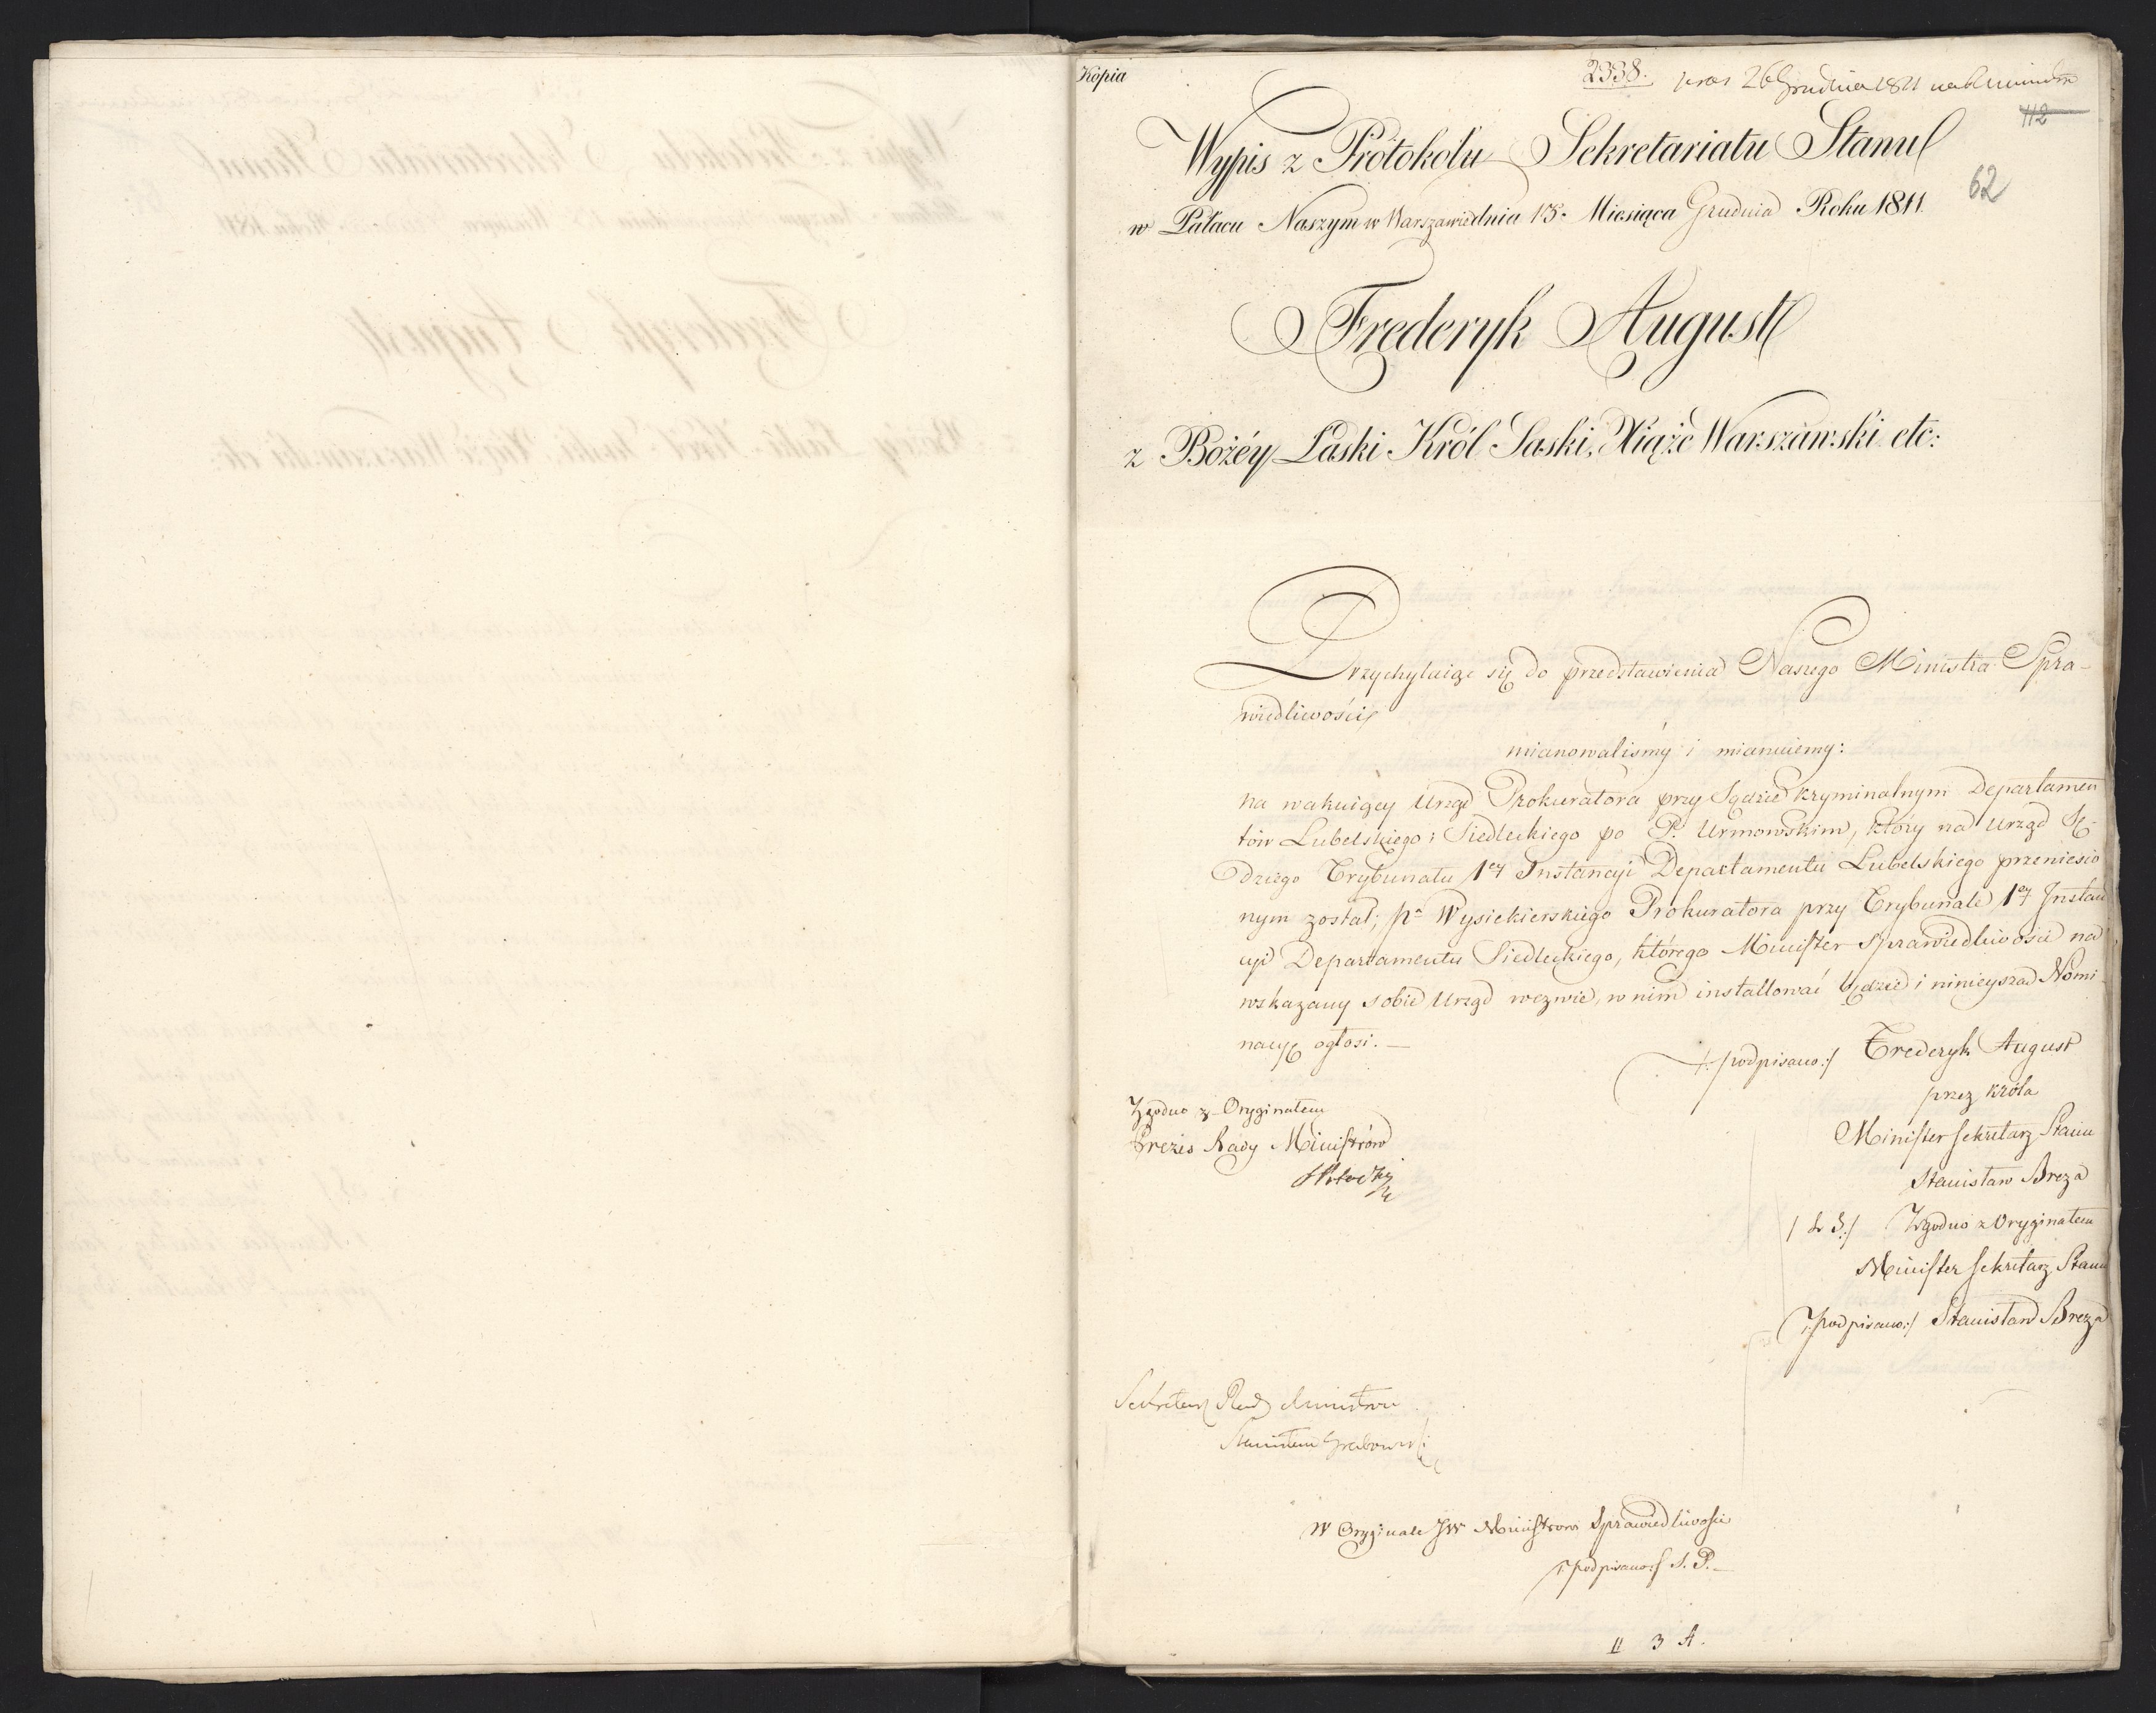 Kopia
2338. 26 Grudnia 1811
112
Wypis z Protokołu Sekretariatu Stanu
62
w Pałacu Naszym w Warszawie dnia 15. Miesiąca Grudnia Roku 1811.
Frederyk August
z Bożéy Łaski Król Saski, Xiąże Warszawski etc:
Przychylaiąc się do przedstawienia Naszego Ministra Spra-
wiedliwości
mianowaliśmy i mianuiemy:
na wakuiący Urząd Prokuratora przy Sądzie kryminalnym Departamen
tów Lubelskiego i Siedleckiego po P. Urmowskim, który na Urząd Sę-
dziego Trybunału 1ey Instancyi Departamentu Lubelskiego przeniesio
nym został; Pa Wysiekierskiego Prokuratora przy Trybunale 1ey Instan
cyi Departamentu Siedleckiego, którego Minister Sprawiedliwości na
wskazany sobie Urząd wezwie, w nim installować będzie i ninieyszą Nomi
nacyę ogłosi. —
/:podpisano:/ Frederyk August
przez Króla
Minister Sekretarz Stanu
Stanisław Breza
/ L S:/ Zgodno z Oryginałem
Minister Sekretarz Stanu
/:podpisano:/ Stanisław Breza
Zgodno z Oryginałem
Prezes Rady Ministrów
Sekretarz Rady Ministrów
Stanisław Grabowski
W Oryginale JW Ministrowi Sprawiedliwości
/:podpisano:/ S. P. —
11 3 A.